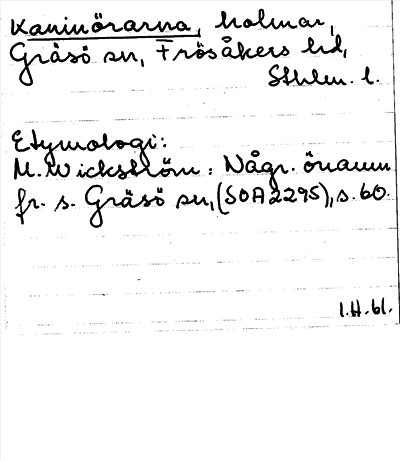 Kaninörarna, holmar,
Gräsö sn, Frösåkers hd,
Sthlm. l.
Etymologi:
M. Wickström: Någr. önamn
fr. s. Gräsö sn, (SOA 2295), s. 60.
1.H.61.